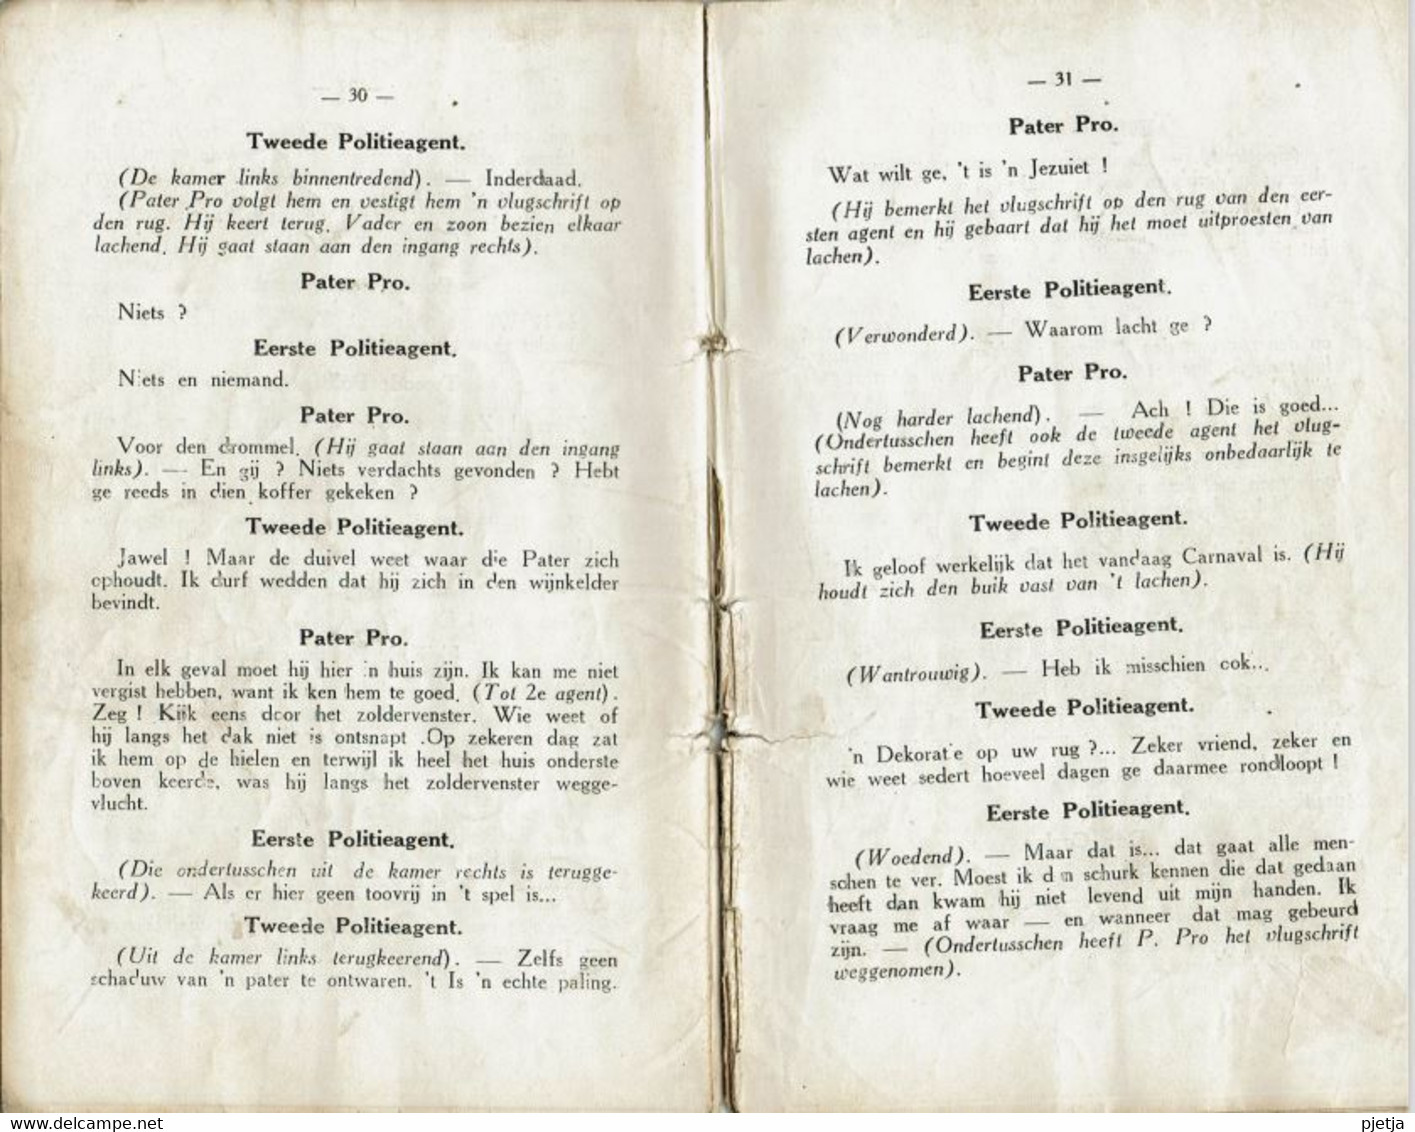 — 30 —
Tweede Politieagent.
(De kamer links binnentredend). — Inderdaad.
(Pater Pro volgt hem en vestigt hem 'n vlugschrift op
den rug. Hij keert terug. Vader en zoon bezien elkaar
lachend. Hij gaat staan aan den ingang rechts).
Pater Pro.
Niets ?
Eerste Politieagent.
Niets en niemand.
Pater Pro.
Voor den drommel. (Hij gaat staan aan den ingang
links). — En gij ? Niets verdachts gevonden ? Hebt
ge reeds in dien koffer gekeken ?
Tweede Politieagent.
Jawel ! Maar de duivel weet waar die Pater zich
ophoudt. Ik durf wedden dat hij zich in den wijnkelder
bevindt.
Pater Pro.
In elk geval moet hij hier 'n huis zijn. Ik kan me niet
vergist hebben, want ik ken hem te goed. (Tot 2e agent).
Zeg ! Kijk eens door het zoldervenster. Wie weet of
hij langs het dak niet is ontsnapt .Op zekeren dag zat
ik hem op de hielen en terwijl ik heel het huis onderste
boven keerde, was hij langs het zoldervenster wegge-
vlucht.
Eerste Politieagent.
(Die ondertusschen uit de kamer rechts is terugge-
keerd). — Als er hier geen toovrij in 't spel is...
Tweede Politieagent.
(Uit de kamer links terugkeerend). — Zelfs geen
schaduw van 'n pater te ontwaren. 't Is 'n echte paling.
— 31 —
Pater Pro.
Wat wilt ge, 't is 'n Jezuiet !
(Hij bemerkt het vlugschrift op den rug van den eer-
sten agent en hij gebaart dat hij het moet uitproesten van
lachen).
Eerste Politieagent.
(Verwonderd). — Waarom lacht ge ?
Pater Pro.
(Nog harder lachend). — Ach ! Die is goed...
(Ondertusschen heeft ook de tweede agent het vlug-
schrift bemerkt en begint deze insgelijks onbedaarlijk te
lachen).
Tweede Politieagent.
Ik geloof werkelijk dat het vandaag Carnaval is. (Hij
houdt zich den buik vast van 't lachen).
Eerste Politieagent.
(Wantrouwig). — Heb ik misschien ook...
Tweede Politieagent.
'n Dekoratie op uw rug ?... Zeker vriend, zeker en
wie weet sedert hoeveel dagen ge daarmee rondloopt !
Eerste Politieagent.
(Woedend). — Maar dat is... dat gaat alle men-
schen te ver. Moest ik den schurk kennen die dat gedaan
heeft dan kwam hij niet levend uit mijn handen. Ik
vraag me af waar — en wanneer dat mag gebeurd
zijn. — (Ondertusschen heeft P. Pro het vlugschrift
weggenomen).
www.delcampe.net
pjetja